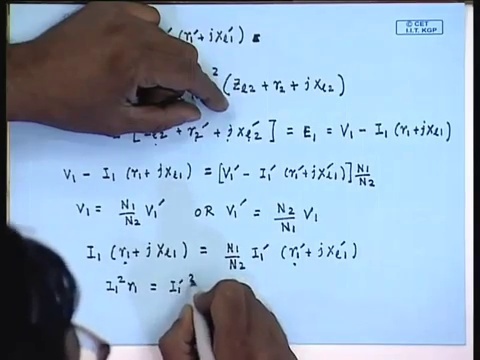 © CET
I.I.T. KGP
(r₁′ + jxₗ₁′)
² (Zₗ₂ + r₂ + jxₗ₂)
+ r₂′ + jxₗ₂′] = E₁ = V₁ - I₁ (r₁ + jxₗ₁)
V₁ - I₁ (r₁ + jxₗ₁) = [V₁′ - I₁′ (r₁′ + jxₗ₁′)] N₁/N₂
V₁ = N₁/N₂ V₁′ OR V₁′ = N₂/N₁ V₁
I₁ (r₁ + jxₗ₁) = N₁/N₂ I₁′ (r₁′ + jxₗ₁′)
I₁² r₁ = I₁′²